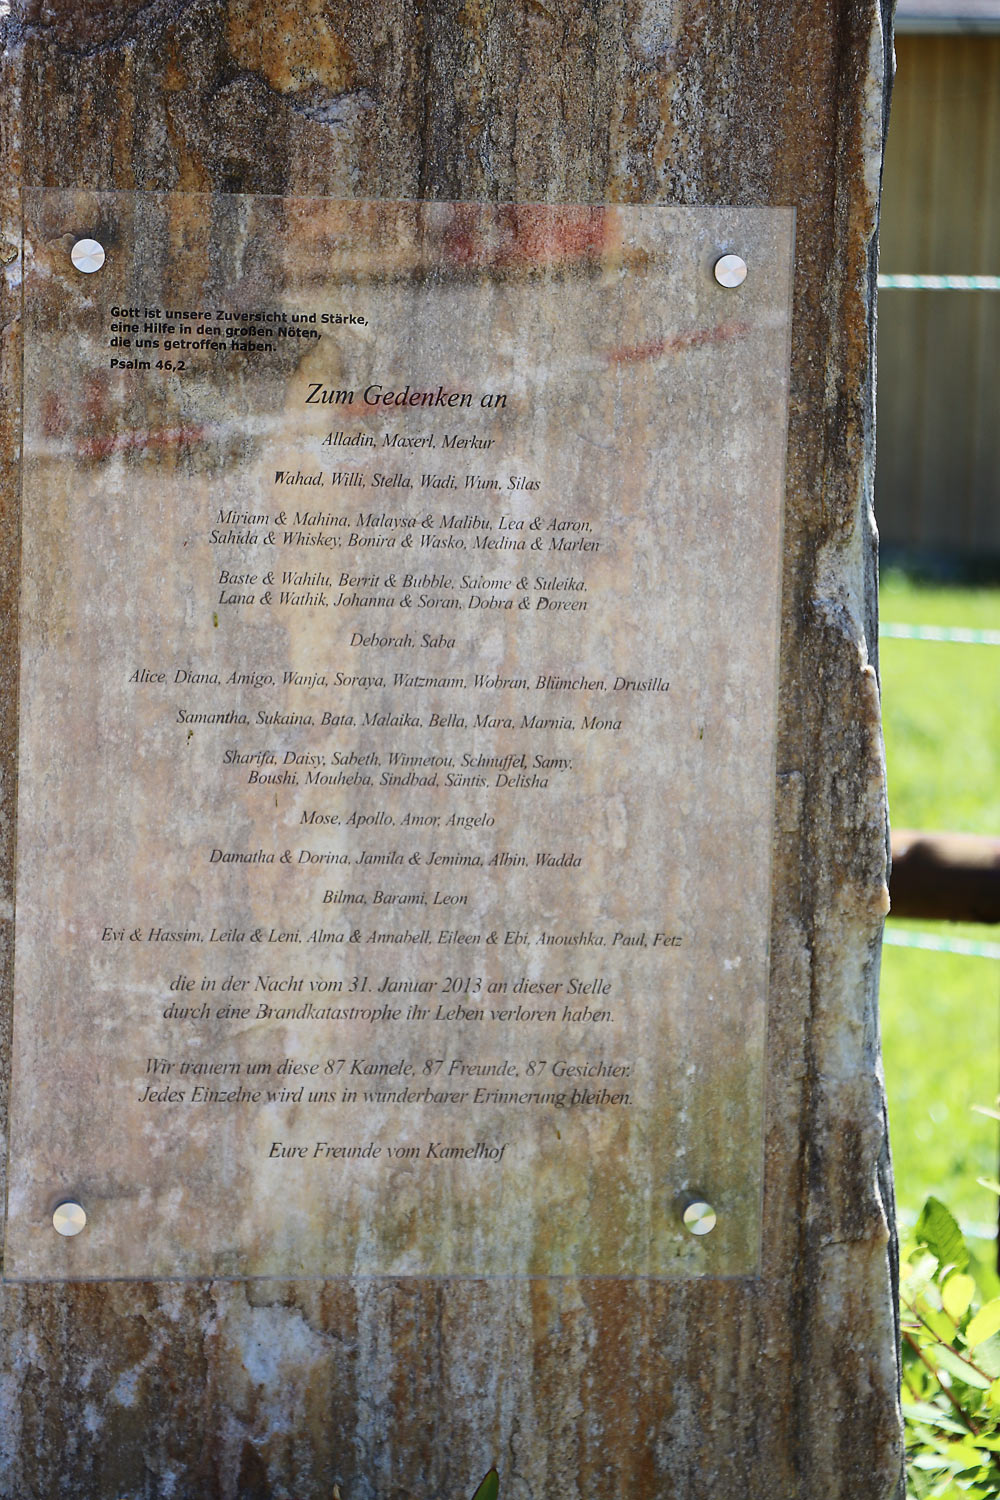 Gott ist unsere Zuversicht und Stärke,
eine Hilfe in den großen Nöten,
die uns getroffen haben.
Psalm 46,2
Zum Gedenken an
Alladin, Maxerl, Merkur
Wahad, Willi, Stella, Wadi, Wum, Silas
Miriam & Mahina, Malaysa & Malibu, Lea & Aaron,
Sahida & Whiskey, Bonira & Wasko, Medina & Marlen
Baste & Wahilu, Berrit & Bubble, Salome & Suleika,
Lana & Wathik, Johanna & Soran, Dobra & Doreen
Deborah, Saba
Alice, Diana, Amigo, Wanja, Soraya, Watzmann, Wobran, Blümchen, Drusilla
Samantha, Sukaina, Bata, Malaika, Bella, Mara, Marnia, Mona
Sharifa, Daisy, Sabeth, Winnetou, Schnuffel, Samy,
Boushi, Mouheba, Sindbad, Säntis, Delisha
Mose, Apollo, Amor, Angelo
Damatha & Dorina, Jamila & Jemima, Albin, Wadda
Bilma, Barami, Leon
Evi & Hassim, Leila & Leni, Alma & Annabell, Eileen & Ebi, Anoushka, Paul, Fetz
die in der Nacht vom 31. Januar 2013 an dieser Stelle
durch eine Brandkatastrophe ihr Leben verloren haben.
Wir trauern um diese 87 Kamele, 87 Freunde, 87 Gesichter.
Jedes Einzelne wird uns in wunderbarer Erinnerung bleiben.
Eure Freunde vom Kamelhof